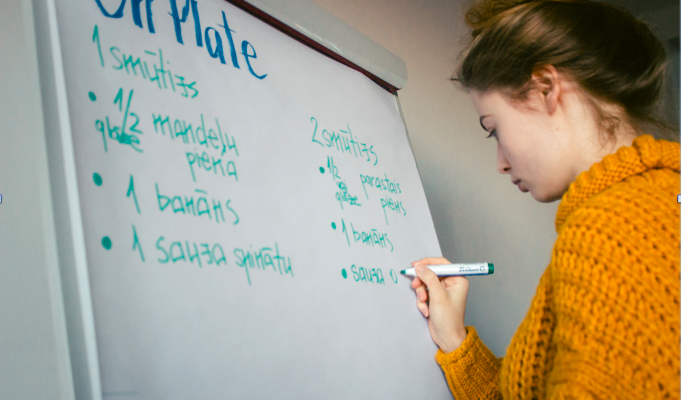 On Plate
1 smūtijs
• 1/2 mandeļu
glāze piena
• 1 banāns
• 1 sauja spinātu
2 smūtijs
• 1/2 parastais
glāze piens
• 1 banāns
• sauja o